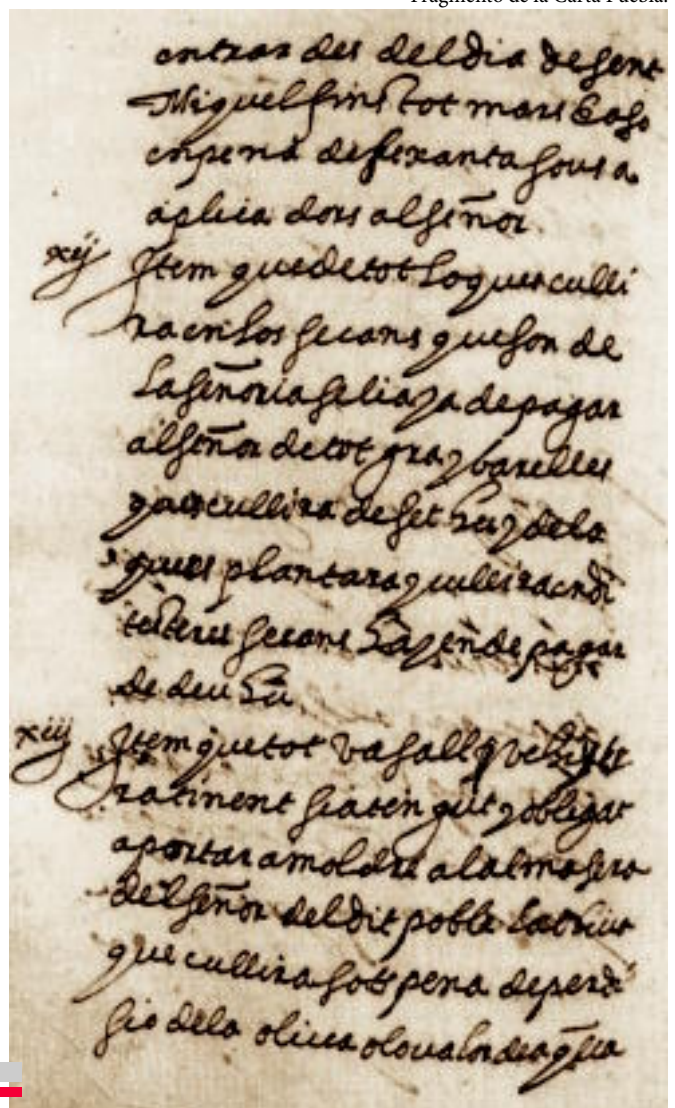 Fragmento de la Carta Puebla.
entrar des del dia de sent
Miquel fins tot mars y aço
en pena de sexanta sous a
aplica dors al señor
xij Item que de tot lo ques culli
ra en los secans que son de
la señoria se li aja de pagar
al señor de tot gra y barelles
ques cullira de set hu y de la
ques plantara y cullira en di
tes terres secans hajen de pagar
de deu hu
xiij Item que tot vasall
ra tinent sia tengut y obligat
a portar a moldre a la almasera
del señor del dit poble la oliva
que cullira sots pena de perdi
sio de la oliva o lo valor de aq̃lla